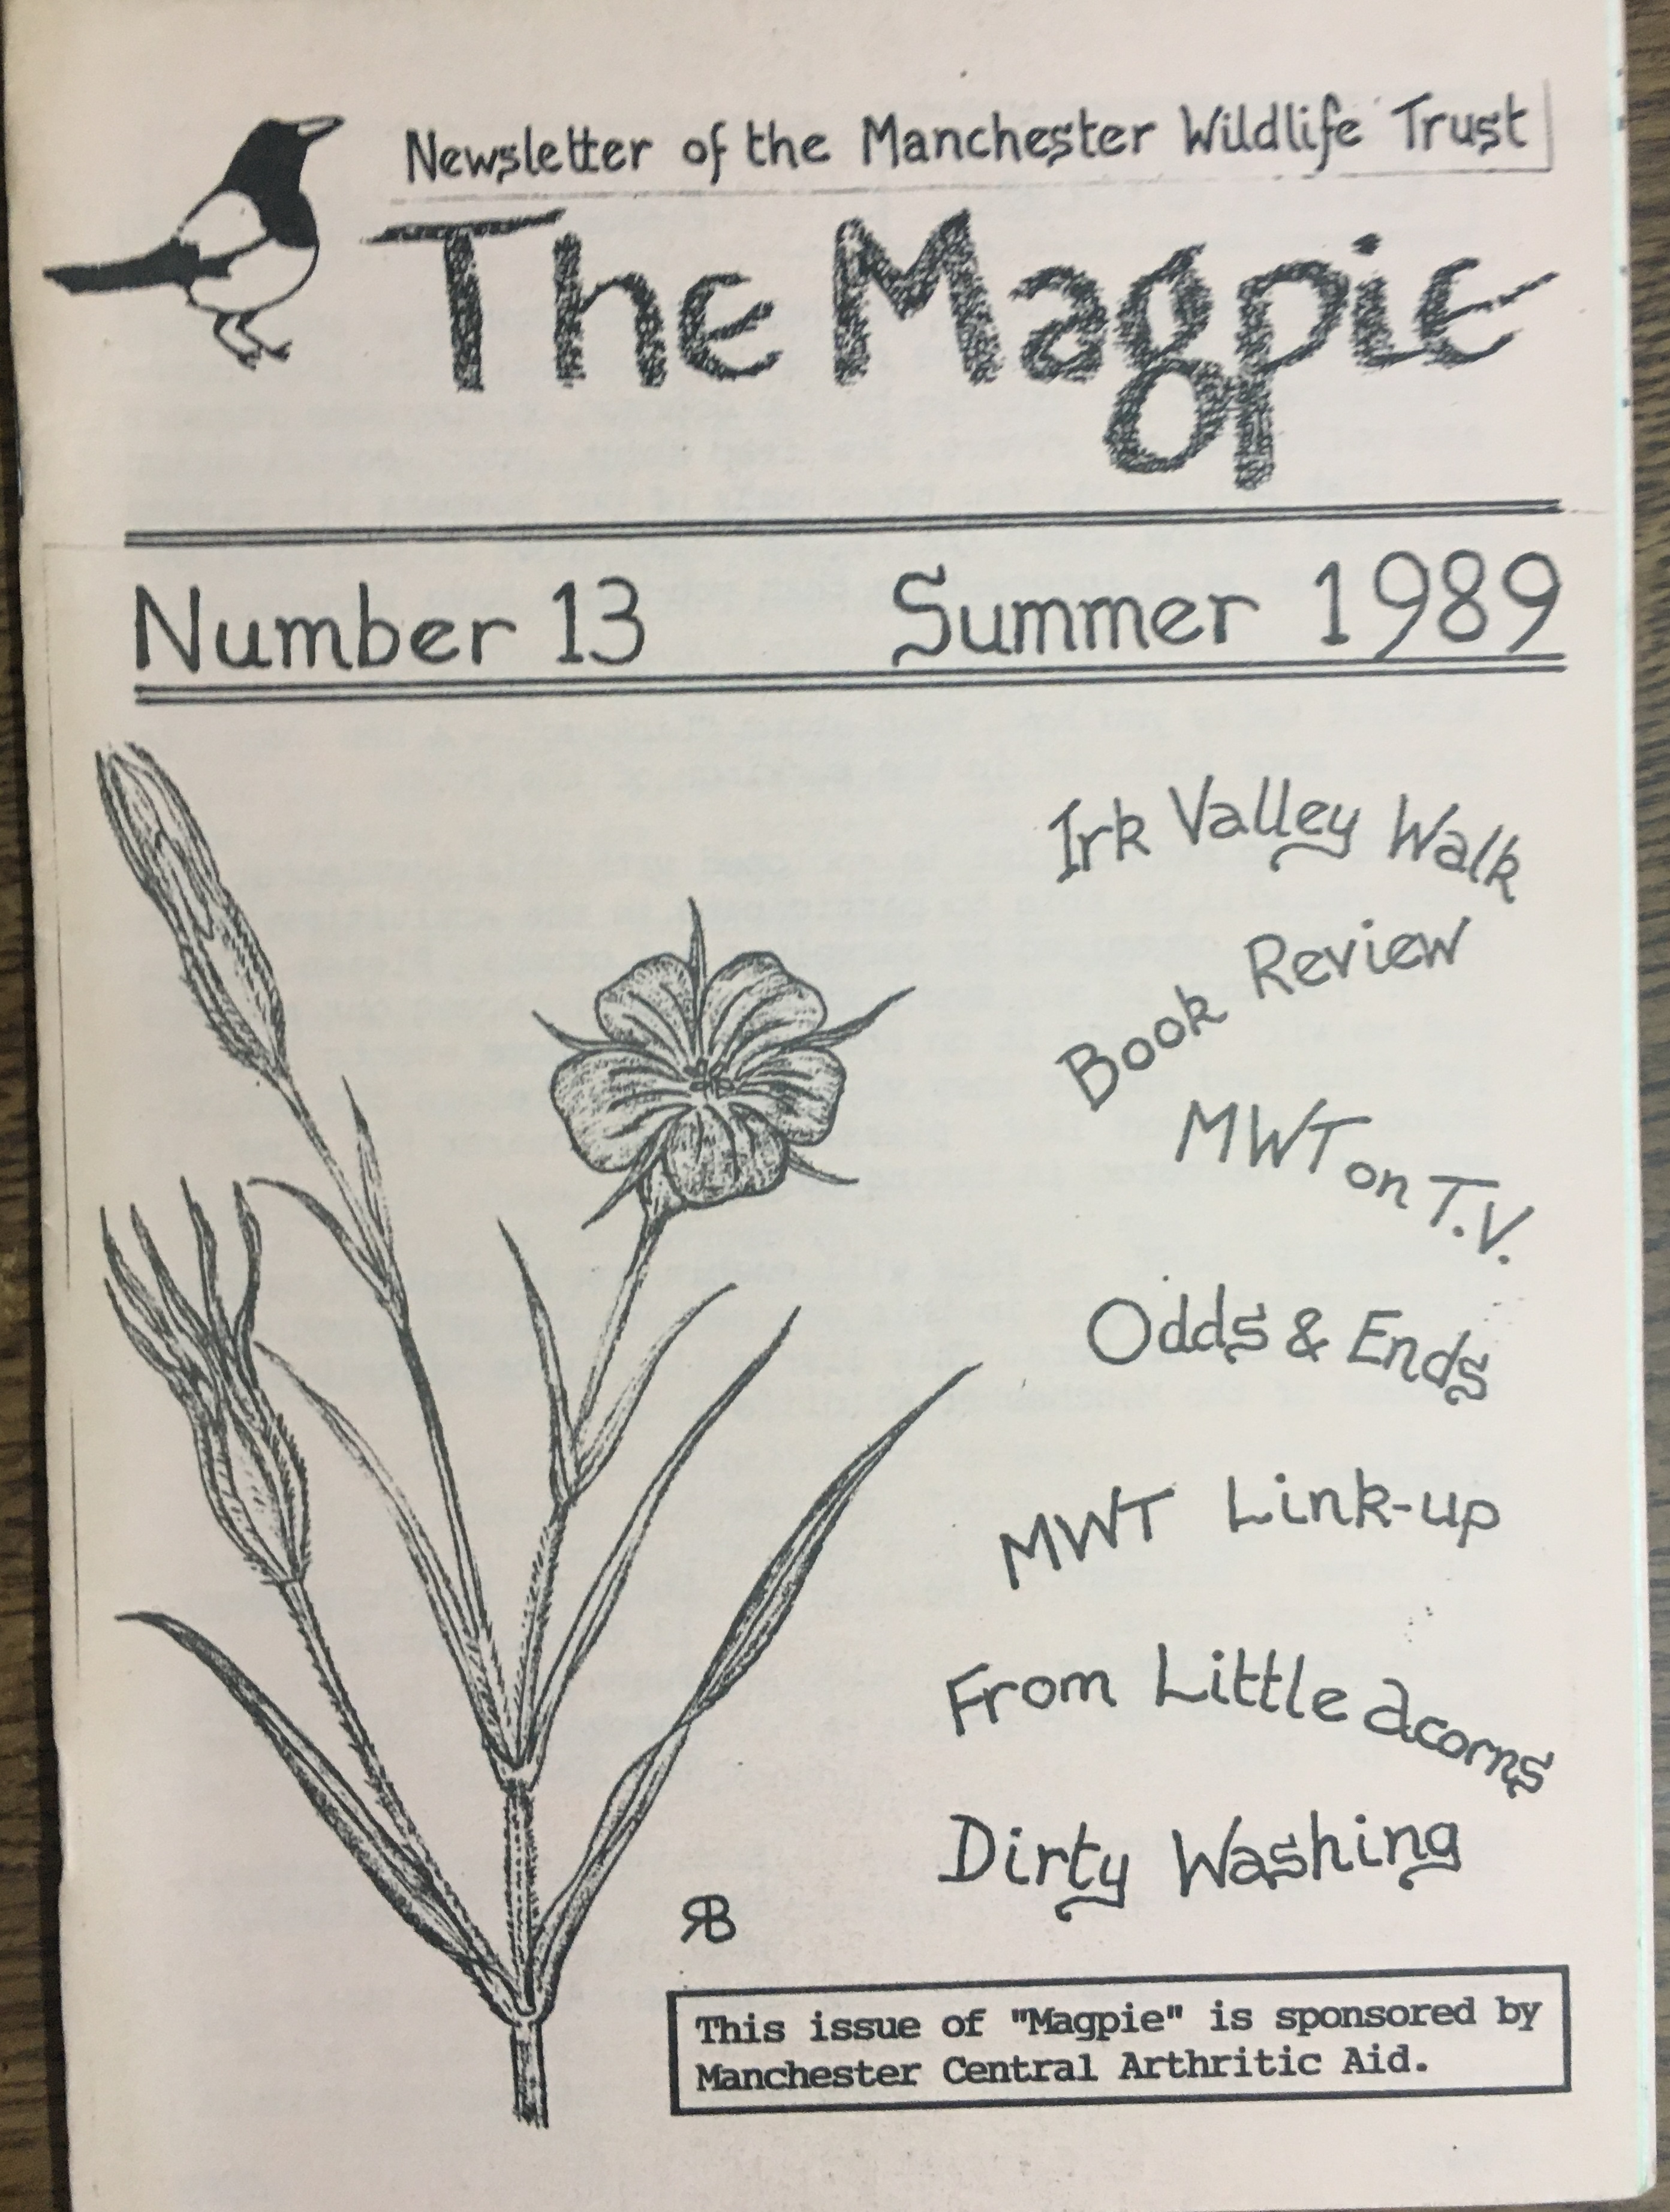 Newsletter of the Manchester Wildlife Trust
The Magpie
Number 13 Summer 1989
Irk Valley Walk
Book Review
MWT on T.V.
Odds & Ends
MWT Link-up
From Little acorns
Dirty Washing
RB
This issue of "Magpie" is sponsored by
Manchester Central Arthritic Aid.